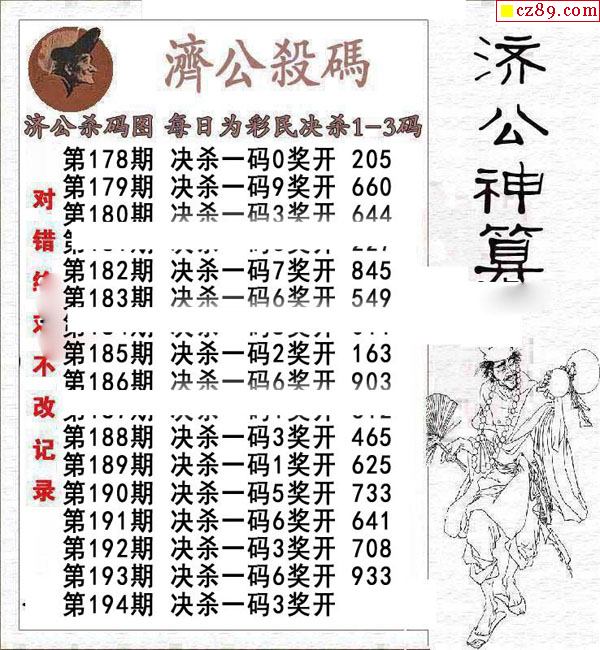 cz89.com
濟公殺碼
济公杀码图 每日为彩民决杀1-3码
第178期 决杀一码0奖开 205
第179期 决杀一码9奖开 660
第180期 决杀一码3奖开 644
第182期 决杀一码7奖开 845
第183期 决杀一码6奖开 549
第185期 决杀一码2奖开 163
第186期 决杀一码6奖开 903
第188期 决杀一码3奖开 465
第189期 决杀一码1奖开 625
第190期 决杀一码5奖开 733
第191期 决杀一码6奖开 641
第192期 决杀一码3奖开 708
第193期 决杀一码6奖开 933
第194期 决杀一码3奖开
对错
不改记录
济公神算